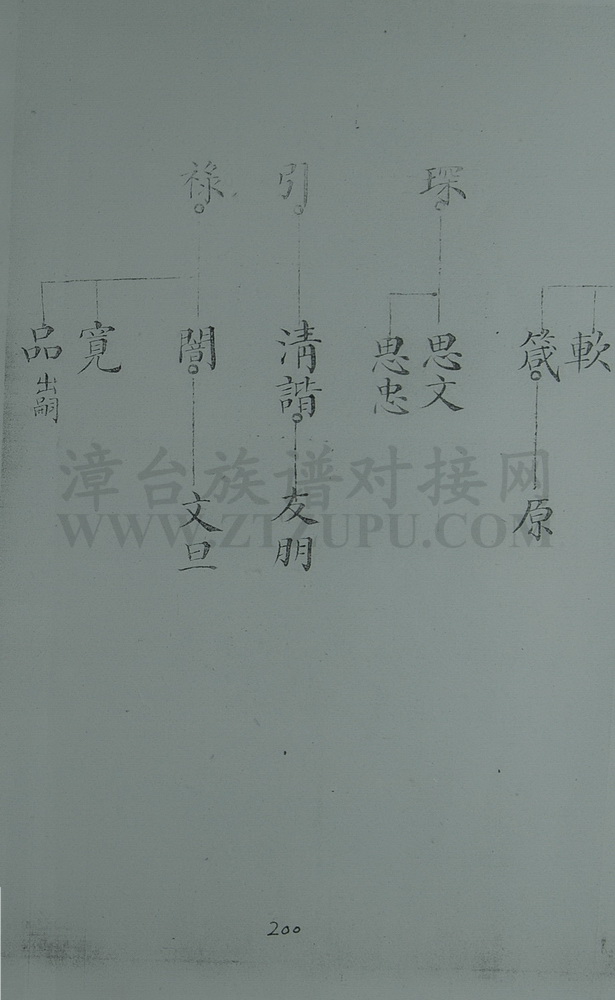 琛
引
祿
軟
箴
思文
思忠
清諧
闇
寬
品 出嗣
原
友朋
文旦
漳台族谱对接网
WWW.ZTZUPU.COM
200